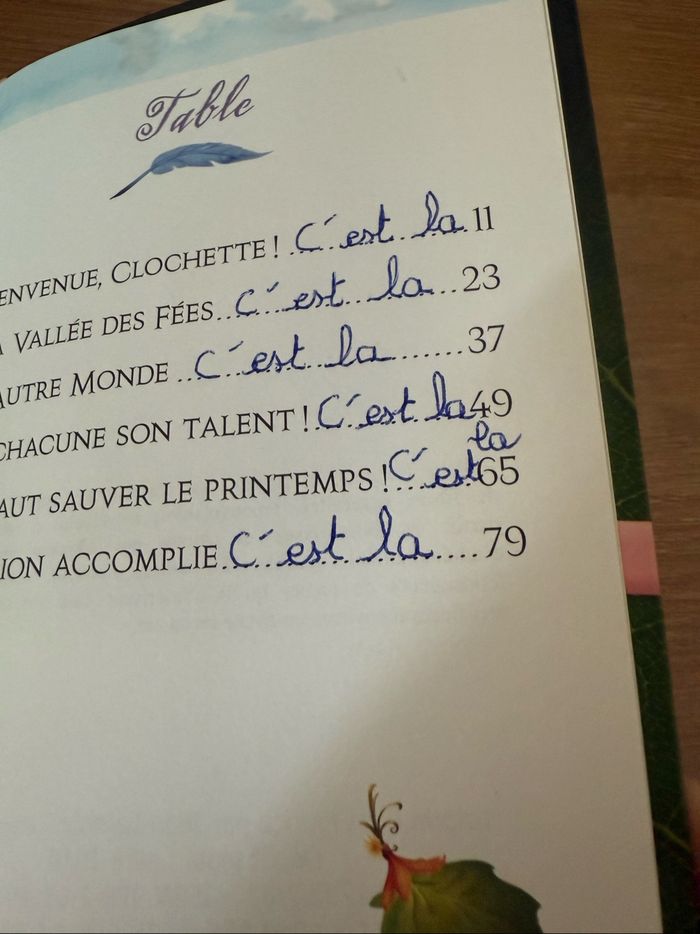 Table
ENVENUE, CLOCHETTE ! C'est la 11
VALLÉE DES FÉES C'est la 23
AUTRE MONDE C'est la 37
CHACUNE SON TALENT ! C'est la 49
AUT SAUVER LE PRINTEMPS ! C'est la 65
ION ACCOMPLIE C'est la 79